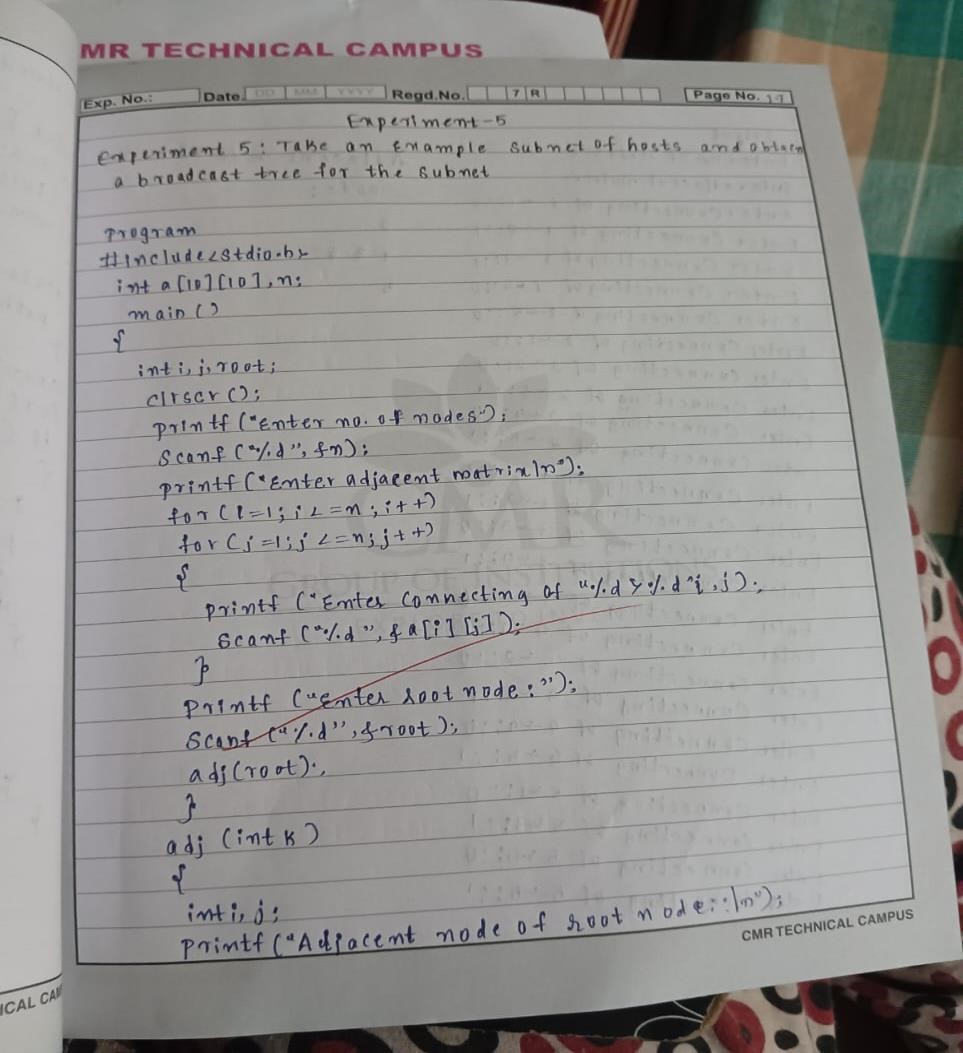 MR TECHNICAL CAMPUS
Exp. No.: Date DD MM YYYY Regd.No. 7 R Page No. 17
Experiment-5
Experiment 5: Take an Example subnet of hosts and obtain
a broadcast tree for the subnet
Program
#include<stdio.h>
int a[10][10],n;
main()
{
int i,j,root;
clrscr();
printf("Enter no. of nodes");
scanf("%d", &n);
printf("Enter adjacent matrix\n");
for(i=1;i<=n;i++)
for(j=1;j<=n;j++)
{
printf("Enter connecting of "%d>%d"i,j);
scanf("%d",&a[i][j]);
}
printf("Enter root node:");
scanf("%d",&root);
adj(root);
}
adj(int k)
{
int i,j;
printf("Adjacent node of root node::\n");
CMR
GROUP OF INSTITUTIONS
CMR TECHNICAL CAMPUS
ICAL CAM